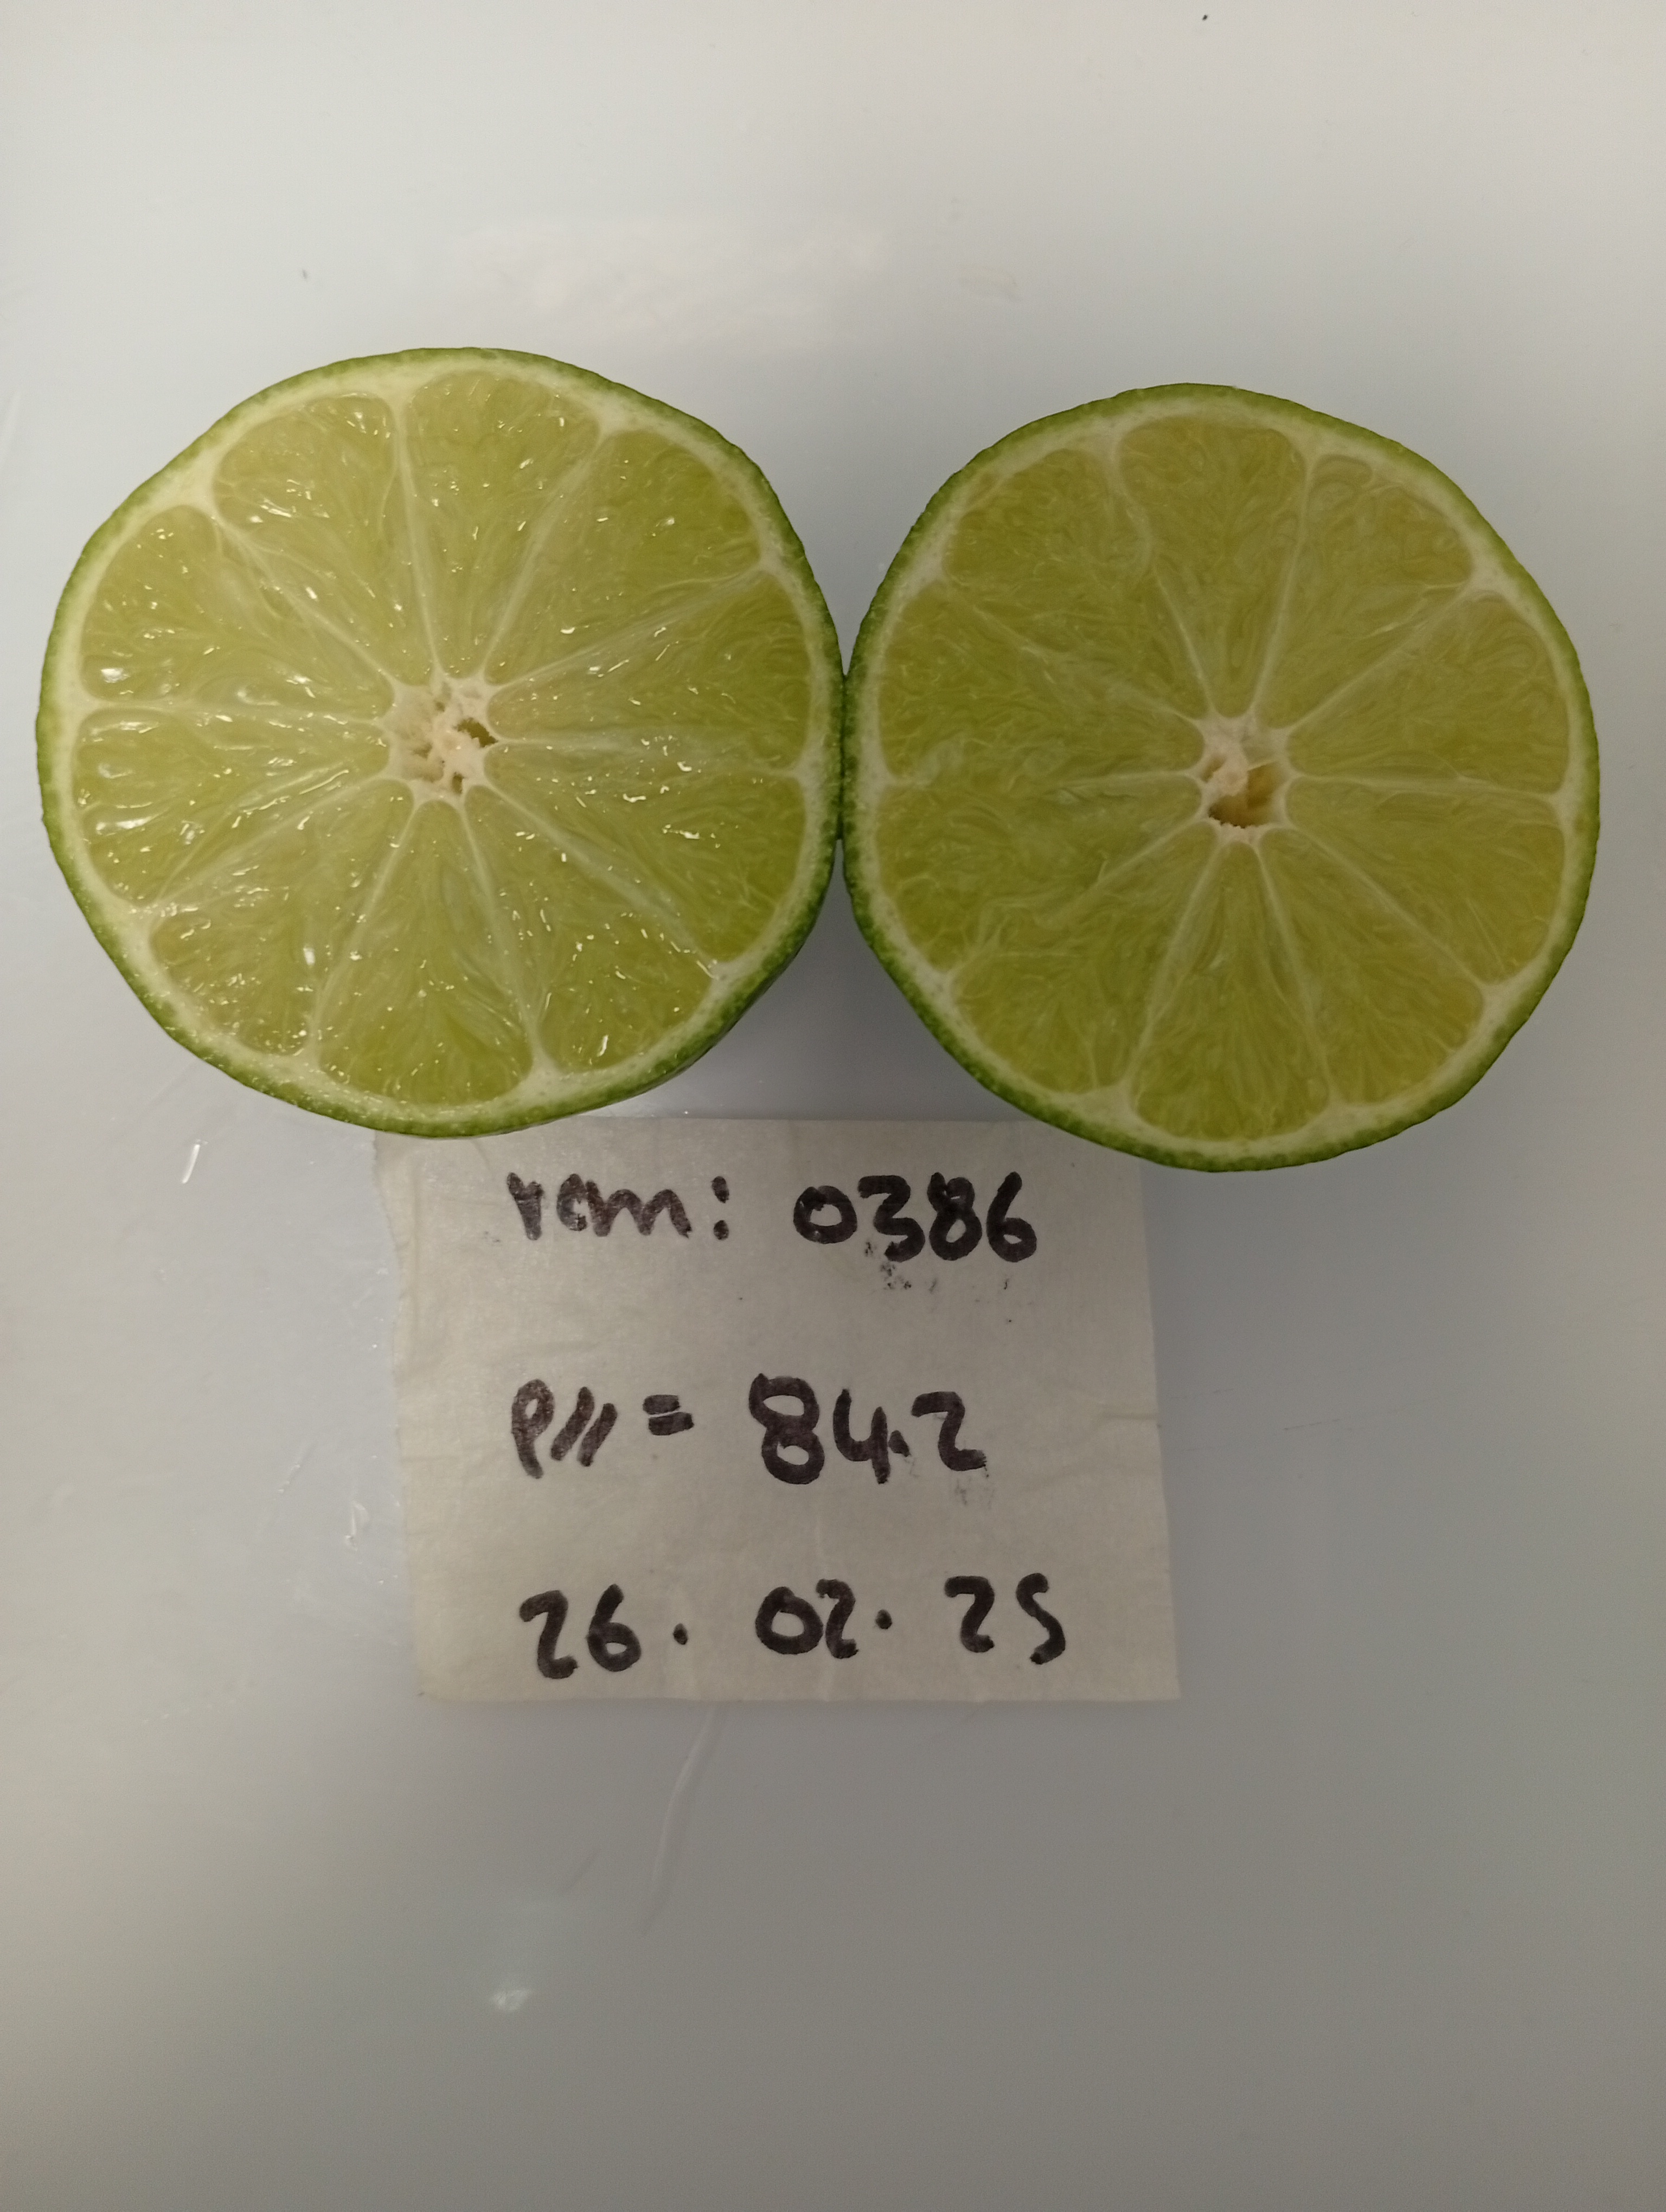 rcm: 0386
P// = 84.2
26. 02. 25